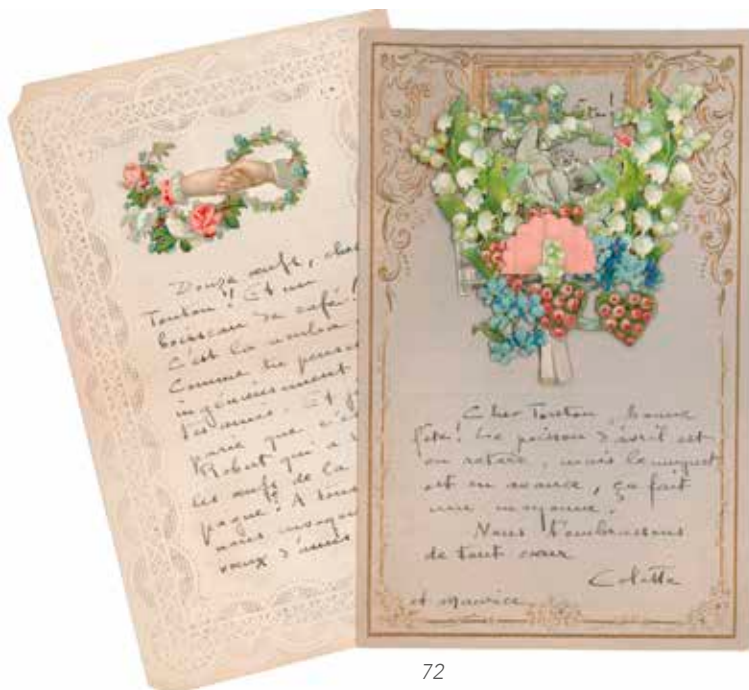 Douze œufs, cher
Tonton! Et un
boisseau de café!
C'est la
Comme tu penses
ingénieusement
tes amis. Et
parie que c'
Robert qui a
les œufs de la
pagne! A tous
nous
vœux d'amis
Cher Tonton, bonne
fête! Le poisson d'avril est
en retard, mais le muguet
est en avance, ça fait
une moyenne!
Nous t'embrassons
de tout cœur
Colette
et Maurice
72